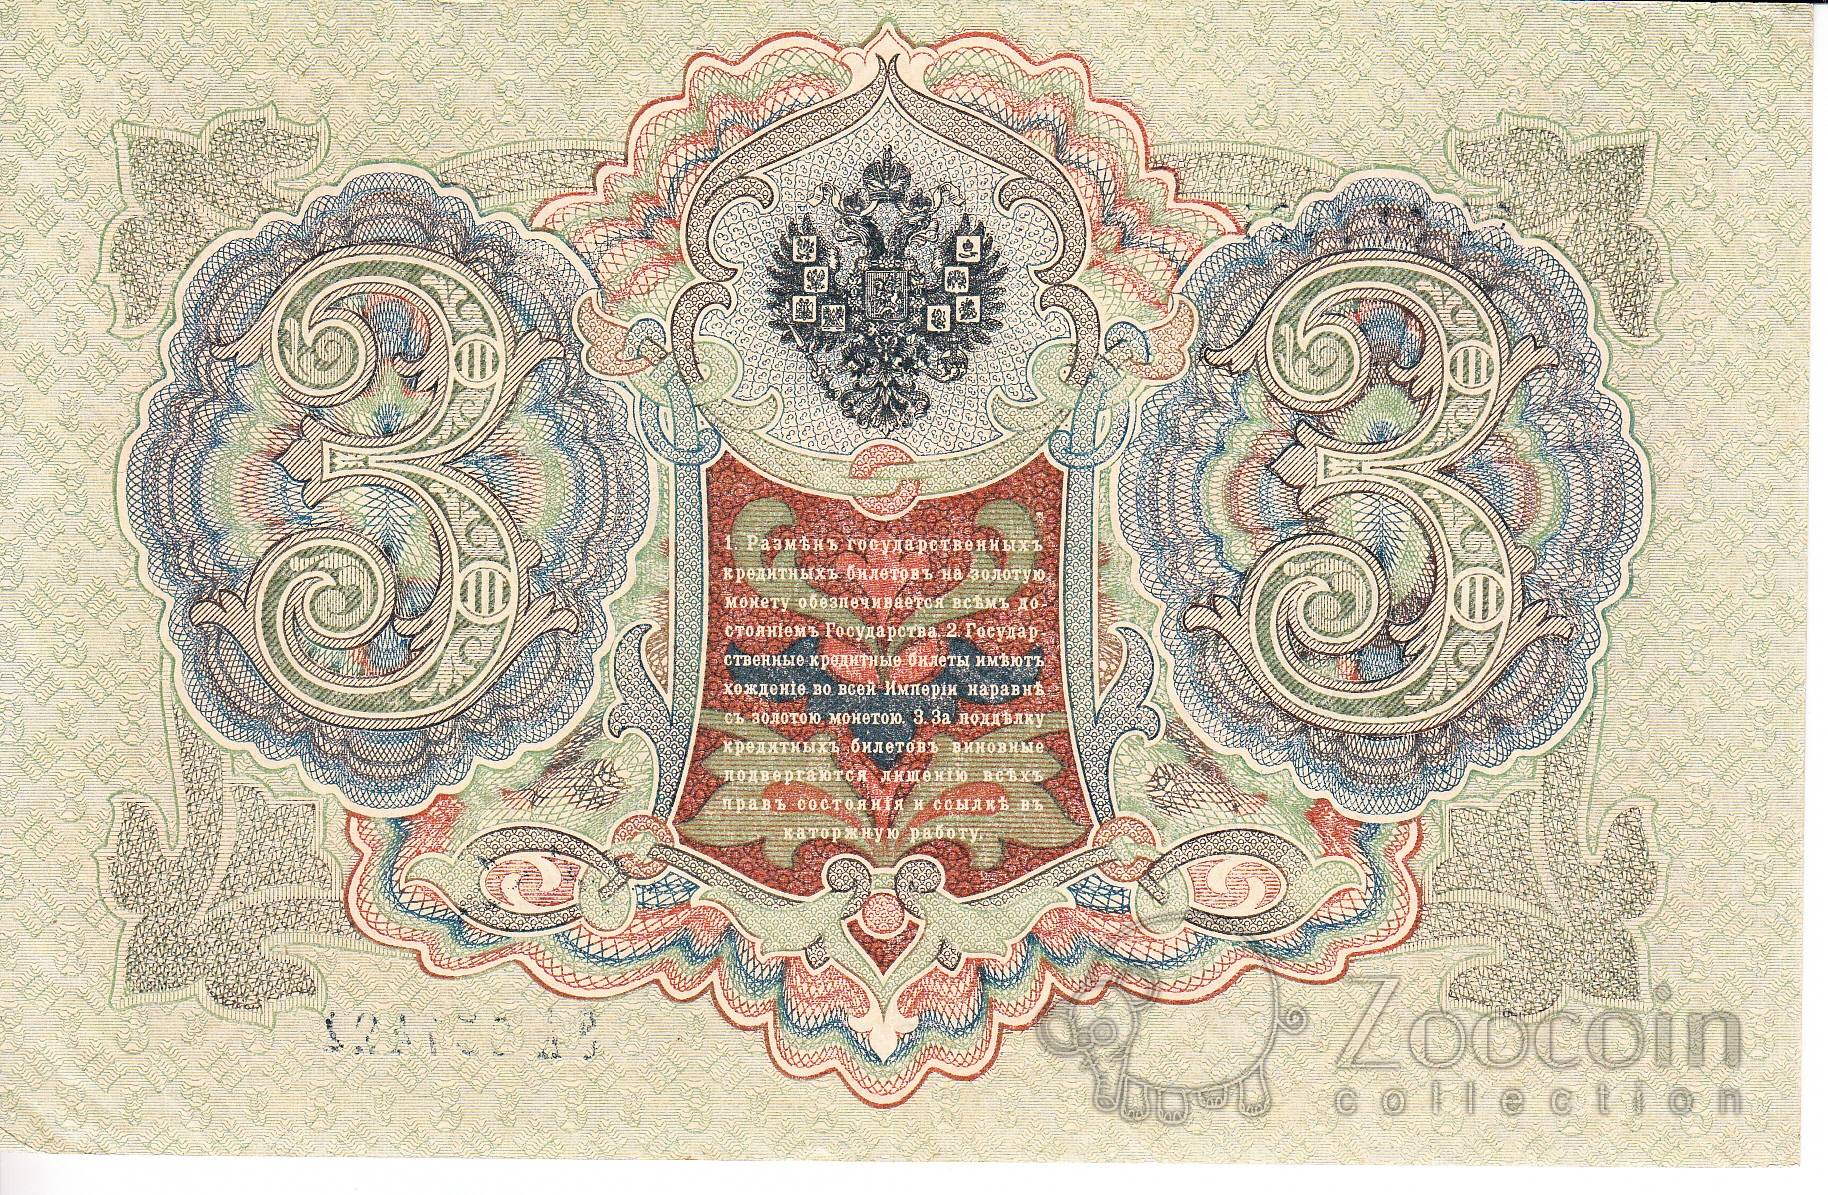 3
3
1. Размѣнъ государственныхъ
кредитныхъ билетовъ на золотую
монету обезпечивается всѣмъ до-
стояніемъ Государства. 2. Государ-
ственные кредитные билеты имѣютъ
хожденіе во всей Имперіи наравнѣ
съ золотою монетою. 3. За поддѣлку
кредитныхъ билетовъ виновные
подвергаются лишенію всѣхъ
правъ состоянія и ссылкѣ въ
каторжную работу.
Zoocoin
collection